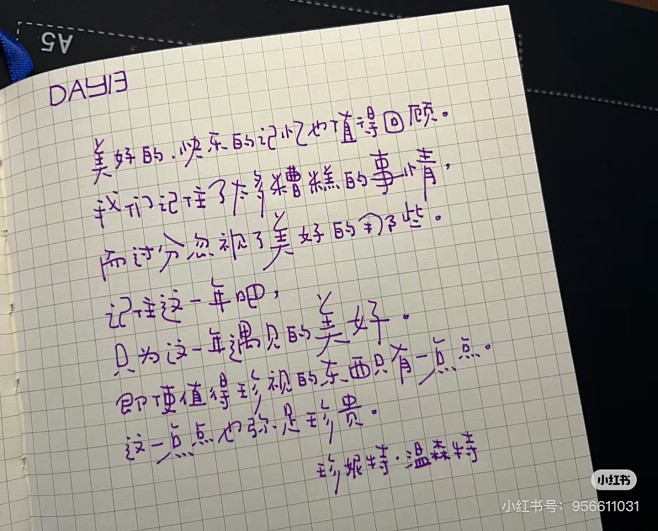 A5
DAY13
美好的、快乐的记忆也值得回顾。
我们记住了太多糟糕的事情，
而过分忽视了美好的那些。
记住这一年吧，
只为这一年遇见的美好。
即使值得珍视的东西只有一点点。
这一点点也弥足珍贵。
珍妮特·温森特
小红书
小红书号：956611031